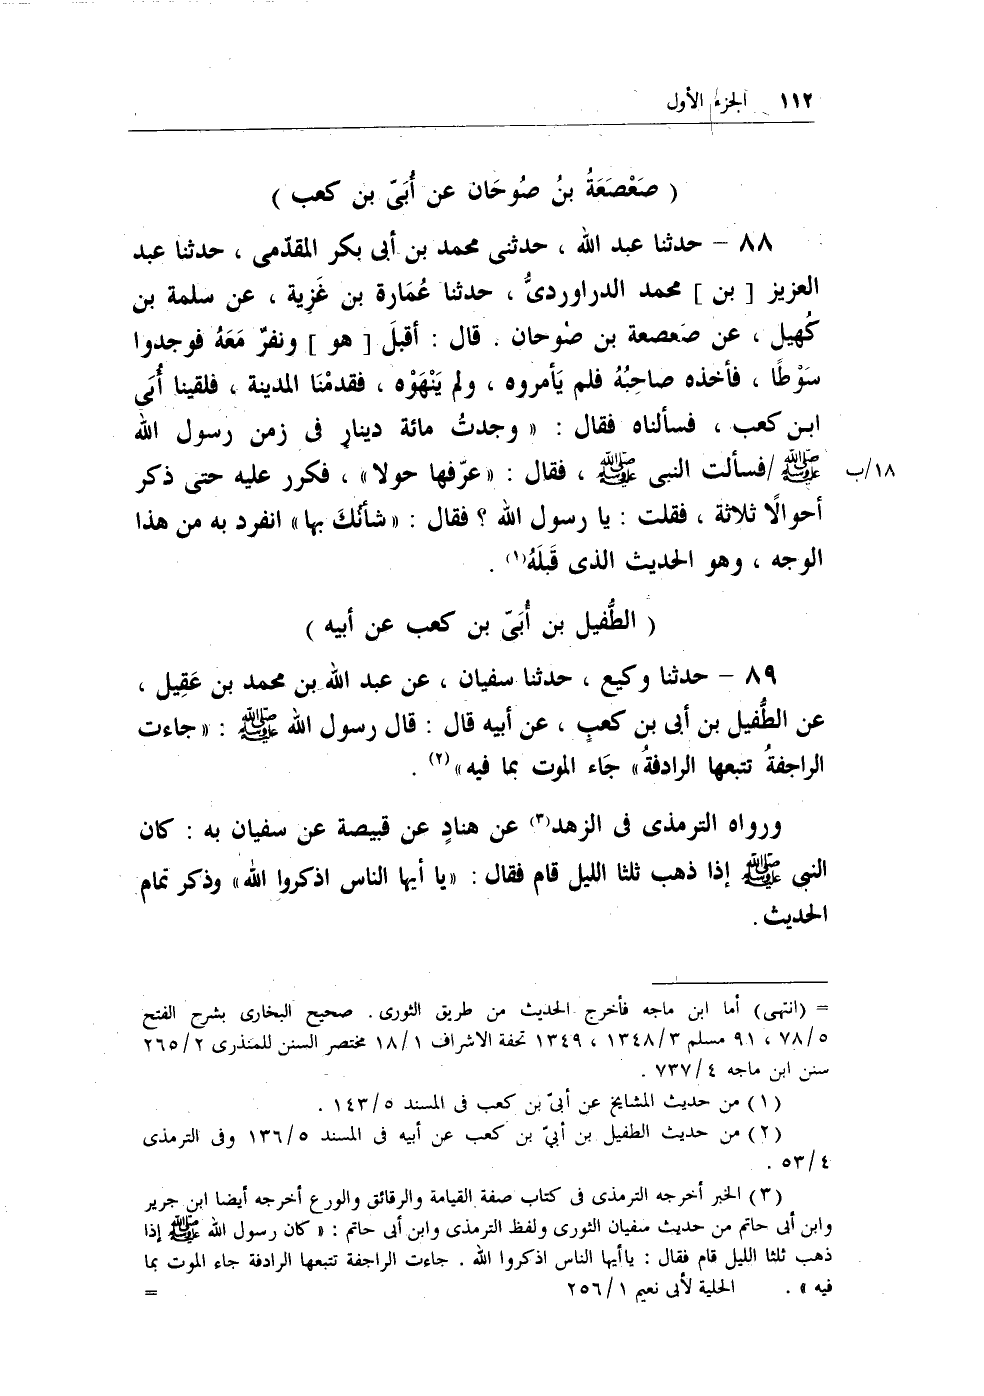 ١١٢ الجزء الأول
( صَعْصَعَةُ بنُ صُوحَان عن أُبَىّ بن كعب )
٨٨ – حدثنا عبد الله ، حدثنى محمد بن أبى بكر المقدّمى ، حدثنا عبد
العزيز [ بن ] محمد الدراوردىُّ ، حدثنا عُمَارة بن غَزِية ، عن سلمة بن
كُهيل ، عن صَعصعة بن صْوحان . قال : أقبلَ [ هو ] ونفرٌ مَعَهُ فوجدوا
سَوْطًا ، فأخذه صاحِبُهُ فلم يَأمروه ، ولم يَنْهَوْه ، فقدمْنَا المدينة ، فلقينا أُبَى
ابن كعب ، فسألناه فقال : « وجدتُ مائة دينارٍ فى زمن رسول الله
ﷺ /فسألت النبى ﷺ ، فقال : «عرّفها حولا» ، فكرر عليه حتى ذكر ١٨/ب
أحوالًا ثلاثة ، فقلت : يا رسول الله ؟ فقال : «شأنُكَ بها» انفرد به من هذا
الوجه ، وهو الحديث الذى قَبلَهُ(١) .
( الطُّفيل بن أُبَىّ بن كعب عن أبيه )
٨٩ – حدثنا وكيع ، حدثنا سفيان ، عن عبد الله بن محمد بن عَقِيل ،
عن الطُّفيل بن أبى بن كعبٍ ، عن أبيه قال : قال رسول الله ﷺ : «جاءت
الراجفةُ تتبعها الرادفةُ» جَاء الموت بما فيه»(٢) .
ورواه الترمذى فى الزهد(٣) عن هنادٍ عن قبيصة عن سفيان به : كان
النبى ﷺ إذا ذهب ثلثا الليل قام فقال : «يا أيها الناس اذكروا الله» وذكر تمام
الحديث .
= (انتهى) أما ابن ماجه فأخرج الحديث من طريق الثورى . صحيح البخارى بشرح الفتح
٧٨/٥ ، ٩١ مسلم ١٣٤٨/٣ ، ١٣٤٩ تحفة الاشراف ١٨/١ مختصر السنن للمنذرى ٢٦٥/٢
سنن ابن ماجه ٧٣٧/٤ .
(١) من حديث المشايخ عن أبىّ بن كعب فى المسند ١٤٣/٥ .
(٢) من حديث الطفيل بن أبىّ بن كعب عن أبيه فى المسند ١٣٦/٥ وفى الترمذى
٥٣/٤ .
(٣) الخبر أخرجه الترمذى فى كتاب صفة القيامة والرقائق والورع أخرجه أيضا ابن جرير
وابن أبى حاتم من حديث سفيان الثورى ولفظ الترمذى وابن أبى حاتم : « كان رسول الله ﷺ إذا
ذهب ثلثا الليل قام فقال : ياأيها الناس اذكروا الله . جاءت الراجفة تتبعها الرادفة جاء الموت بما
فيه » . الحلية لأبى نعيم ٢٥٦/١ =